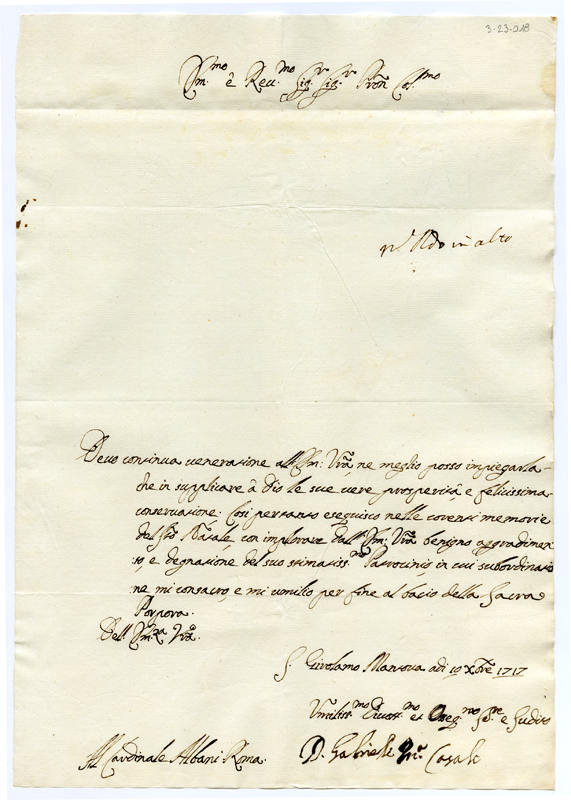 3-23-018
Em.mo è Reu.mo Sig.r Sig.r Pron Col.mo
in alto
Deuo continua ueneratione all'Em: Vrã, ne meglio posso impiegarla
che in supplicare à Dio le sue uere prosperità, e felicissima
conseruatione: Così pertanto eseguisco nelle correnti memorie
del S.to Natale, con implorare dall'Em: Vrã benigno aggradimen
to e degnatione del suo stimatiss.mo Patrocinio, in cui subordinatio
ne mi consacro, e mi umilio per fine al bacio della Sacra
Porpora.
Dell'Em.za Vrã.
S. Girolamo Mantoua adi 19 Xbre 1717
Vmiliss.mo Diuot.mo et Obeg.mo Se.re e Sudito
Al Cardinale Albani Rma.
D. Gabriele Casale